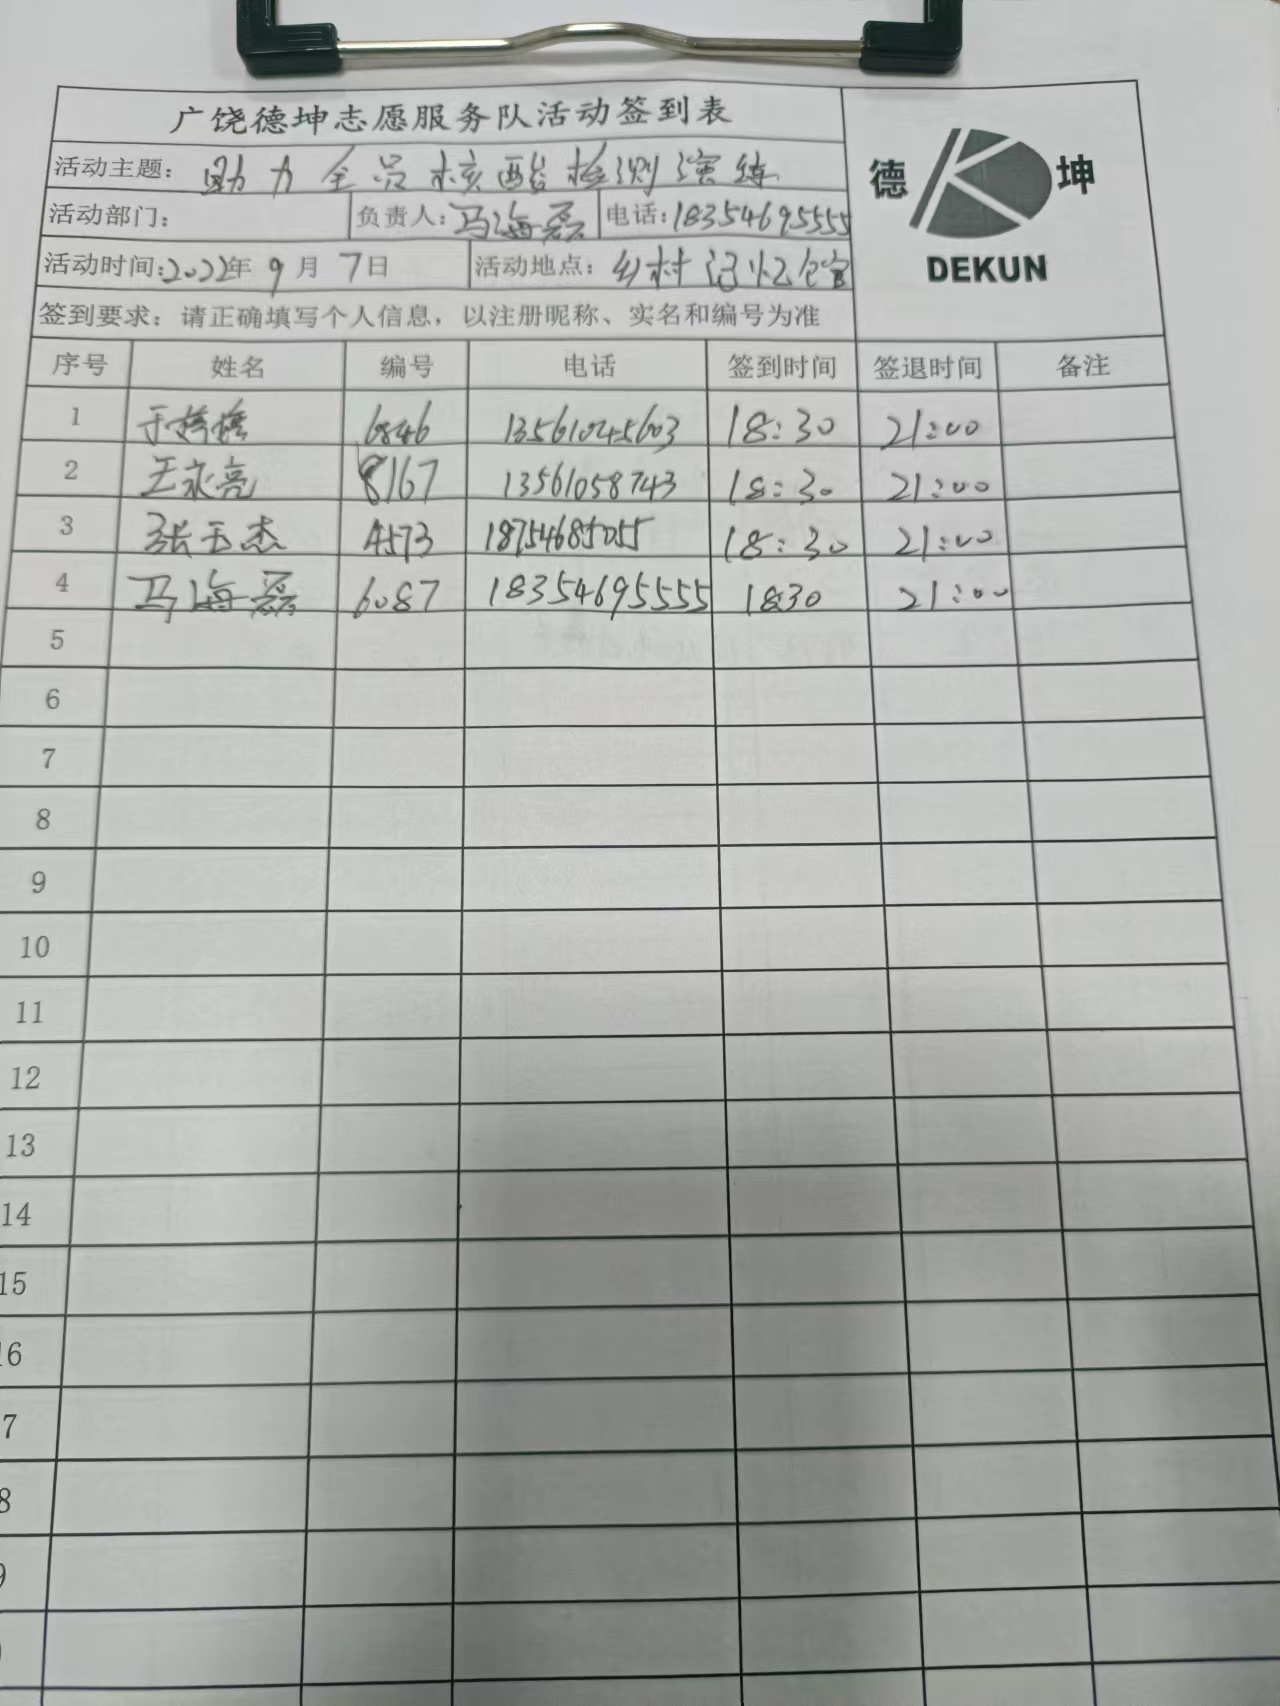 广饶德坤志愿服务队活动签到表
德 坤
DEKUN
活动主题: 助力全员核酸检测演练
活动部门: 负责人: 马海磊 电话: 18354695555
活动时间: 2022年 9 月 7 日 活动地点: 乡村记忆
签到要求: 请正确填写个人信息, 以注册昵称、实名和编号为准
序号 姓名 编号 电话 签到时间 签退时间 备注
1 于 6846 13561045603 18:30 21:00
2 王永亮 8167 13561058743 18:30 21:00
3 张玉杰 4573 18754685055 18:30 21:00
4 马海磊 6087 18354695555 18:30 21:00
5
6
7
8
9
10
11
12
13
14
15
16
7
8
9